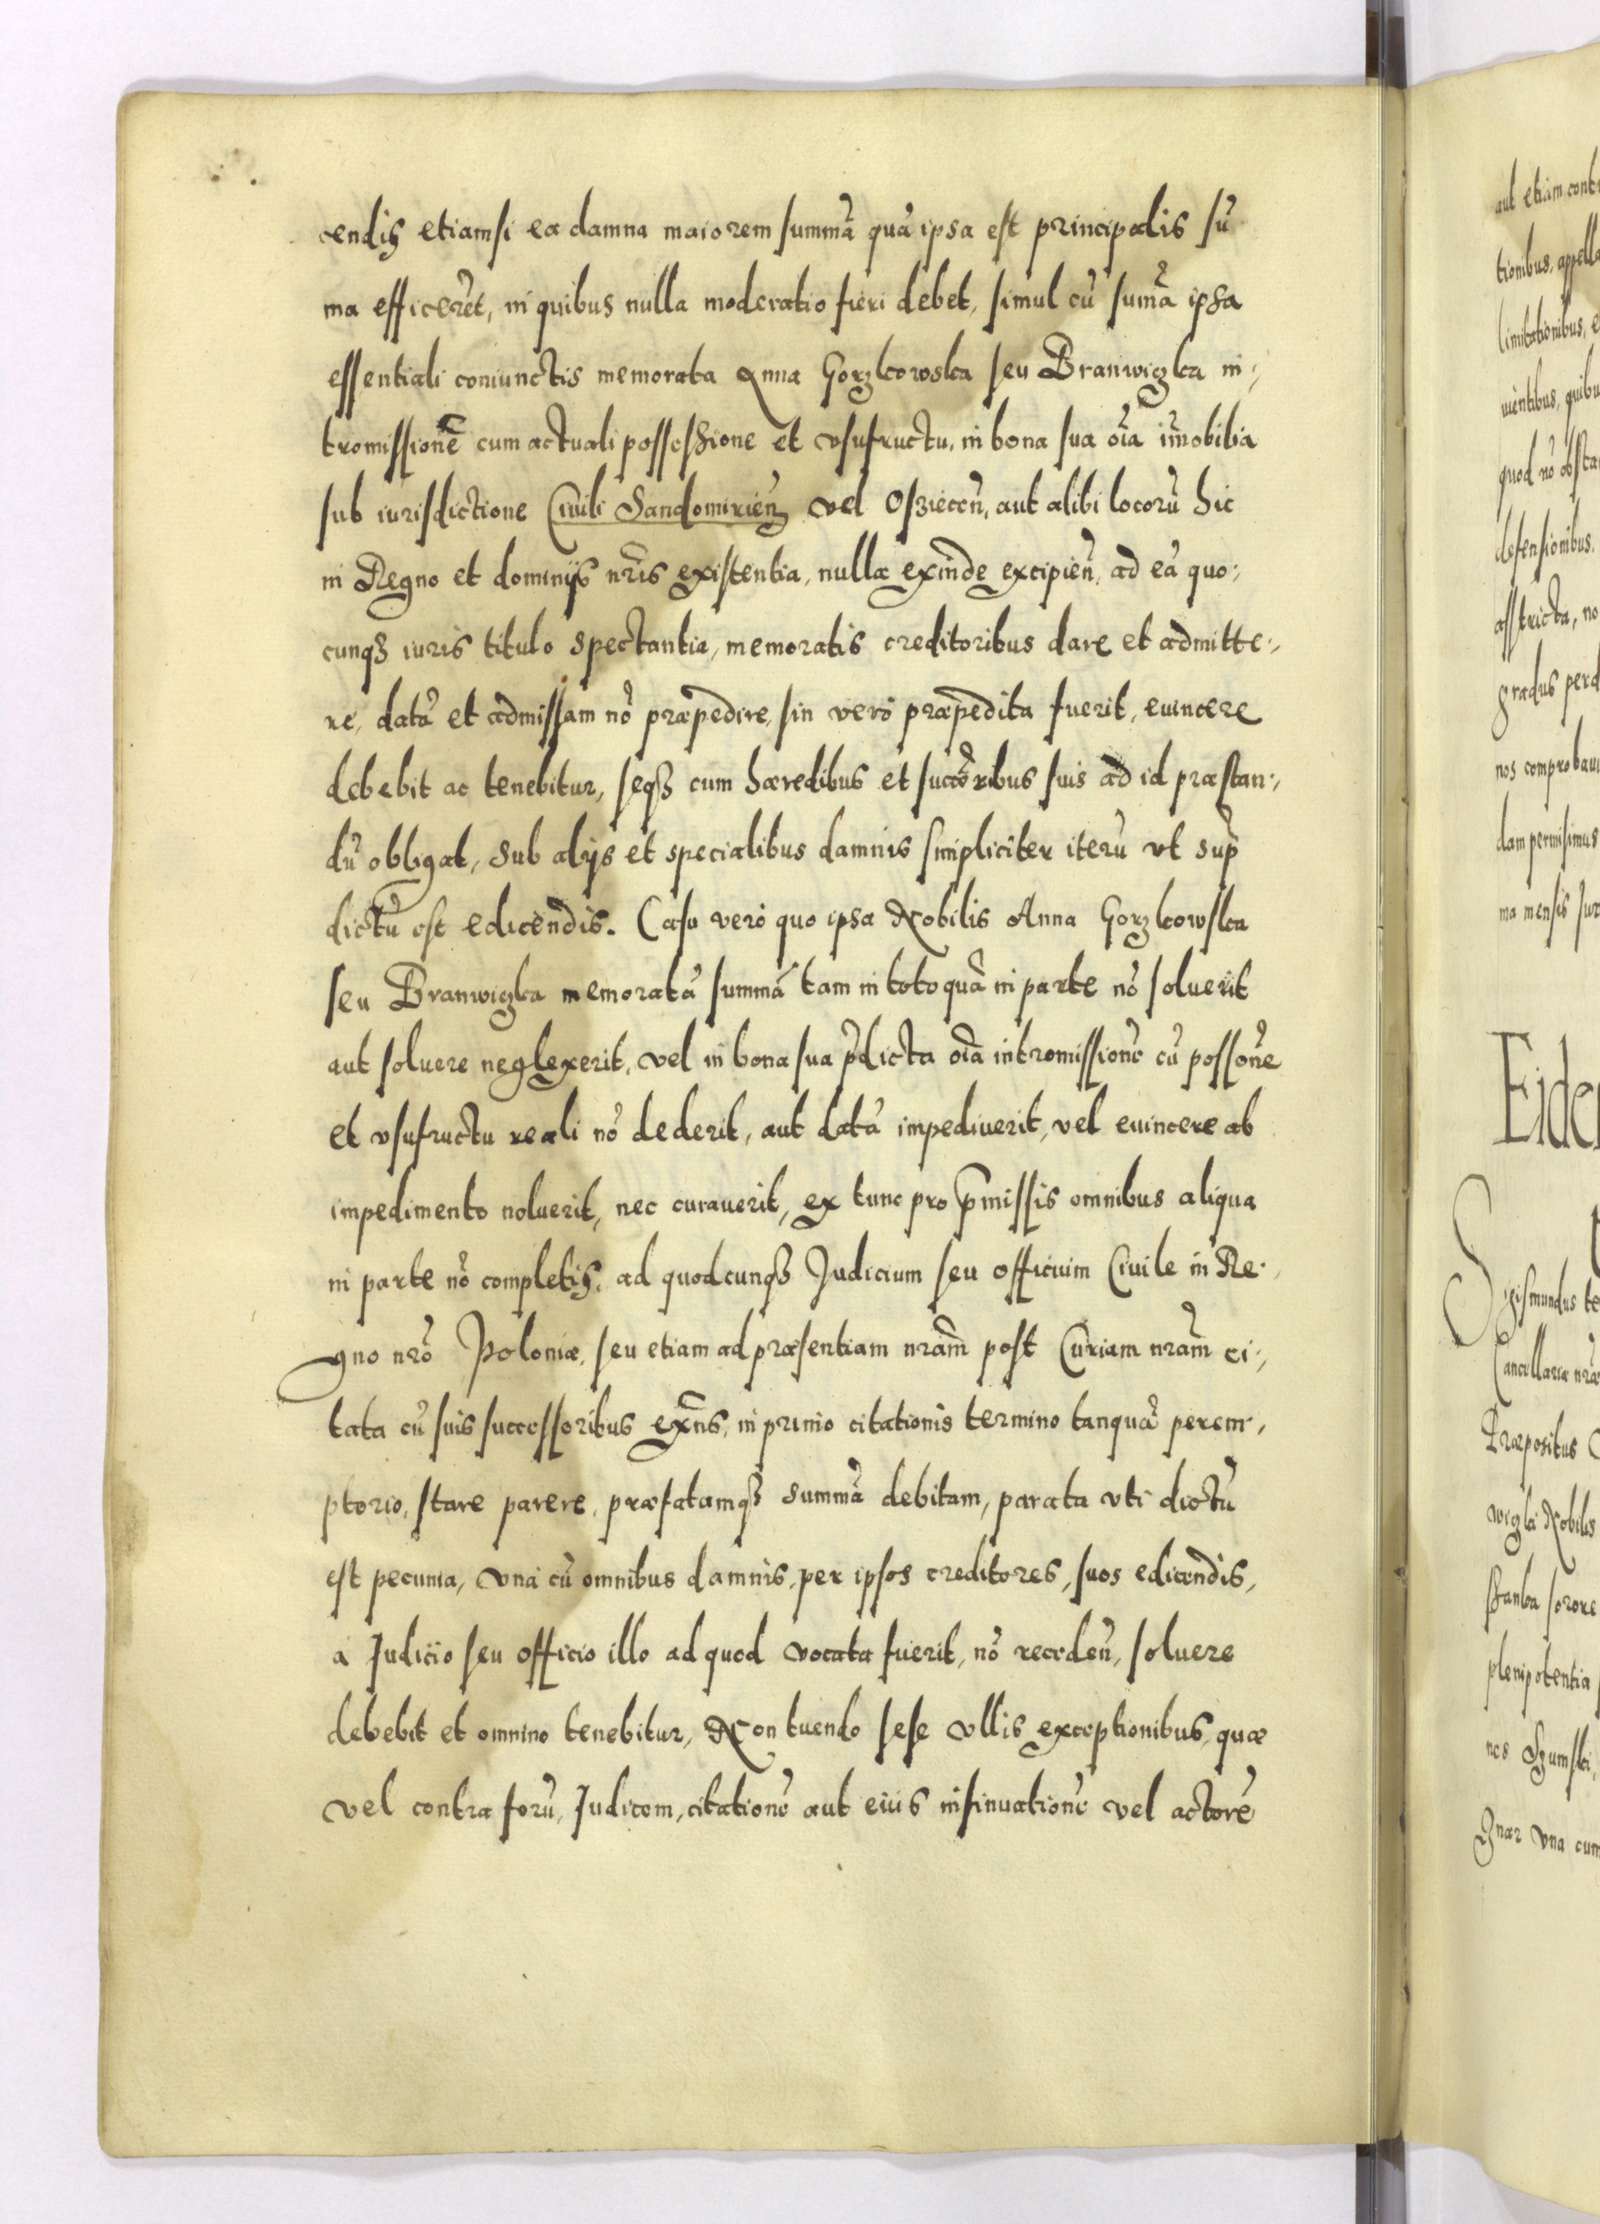 cendis etiamsi ea damna maiorem summā quā ipsa est principalis sū
ma efficeret, in quibus nulla moderatio fieri debet, simul cū sumā ipsa
essentiali coniunctis memorata Anna Gorzkowska seu Branwigka in,
tromissionē cum actuali possessione et vsufructu, in bona sua oīa iṁobilia
sub iurisdictione Ciuili Sandomirieñ vel Osziecen̄, aut alibi locorū hic
in Regno et dominijs nr̄is existentia, nulla exinde excipien̄, ad eā quo,
cunqз iuris titulo spectantia, memoratis creditoribus dare et admitte,
re, datā et admissam nō præpedire, sin vero præpedita fuerit, euincere
debebit ac tenebitur, seqз cum hæredibus et succ̄oribus suis ad id præstan,
dū obligat, sub alijs et specialibus damnis simpliciter iterū vt sup̄
dictū est edicendis. Casu verò quo ipsa Nobilis Anna Gorzkowska
seu Branwigka memoratā summā tam in toto quā in parte nō soluerit
aut soluere neglexerit, vel in bona sua p̄dicta oīa intromissionē cū poss̄one
et vsufructu reali nō dederit, aut datā impediuerit, vel euincere ab
impedimento noluerit, nec curauerit, ex tunc pro p̄missis omnibus aliqua
in parte nō completis, ad quodcunqз Judicium seu officium Ciuile in Re,
gno nr̄o Poloniæ, seu etiam ad præsentiam nr̄am post Curiam nr̄am ci,
tata cū suis successoribus exn̄s, in primo citationis termino tanquā perem,
ptorio, stare parere, præfatamqз summā debitam, parata vti dictū
est pecunia, vnà cū omnibus damnis, per ipsos creditores, suos edicendis,
à Judicio seu officio illo ad quod vocata fuerit, nō receden̄, soluere
debebit et omnino tenebitur, Non tuendo sese vllis exceptionibus, quæ
vel contra forū, Judicem, citationē aut eius insinuationē vel actorē
aut etiam cont
tionibus, appella
limitationibus, e
uientibus, quibu
quod nō obsta
defensionibus,
astricta, no
gradus perd
nos comprobaui
dam permisimus
ma mensis Jun
Eide
Sigismundus te
Cancellariæ nr̄æ
Præpositus
Nobilis
sorore
plenipotentia
vna cum